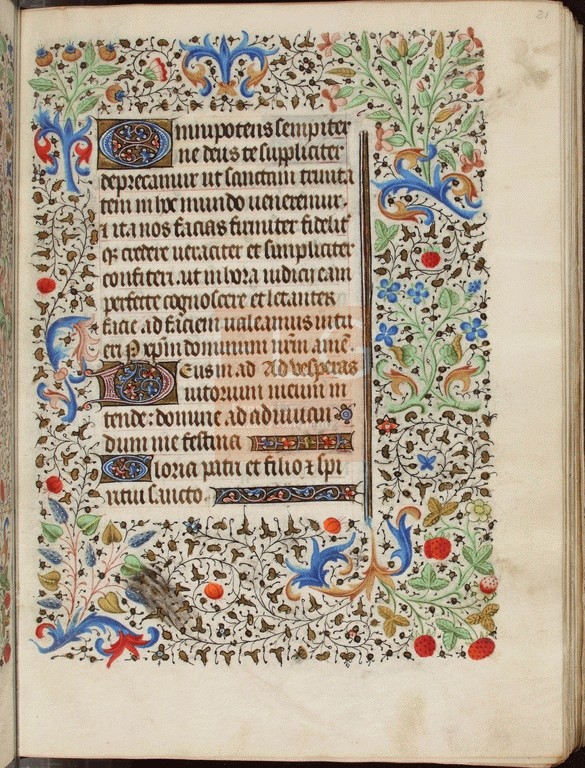 21
Omnipotens sempiter
ne deus te suppliciter
deprecamur ut sanctam trinita
tem in hoc mundo veneremur.
et ita nos facias firmiter fidelit
credere veraciter et simpliciter
confiteri. ut in hora iudicii eam
perfecte cognoscere et letantes
facie ad faciem valeamus intu
eri P xpm dominum nrm ame.
Deus in ad Ad vesperas
iutorium meum in
tende: domine ad adiuvan
dum me festina
Gloria patri et filio et spi
ritui sancto.